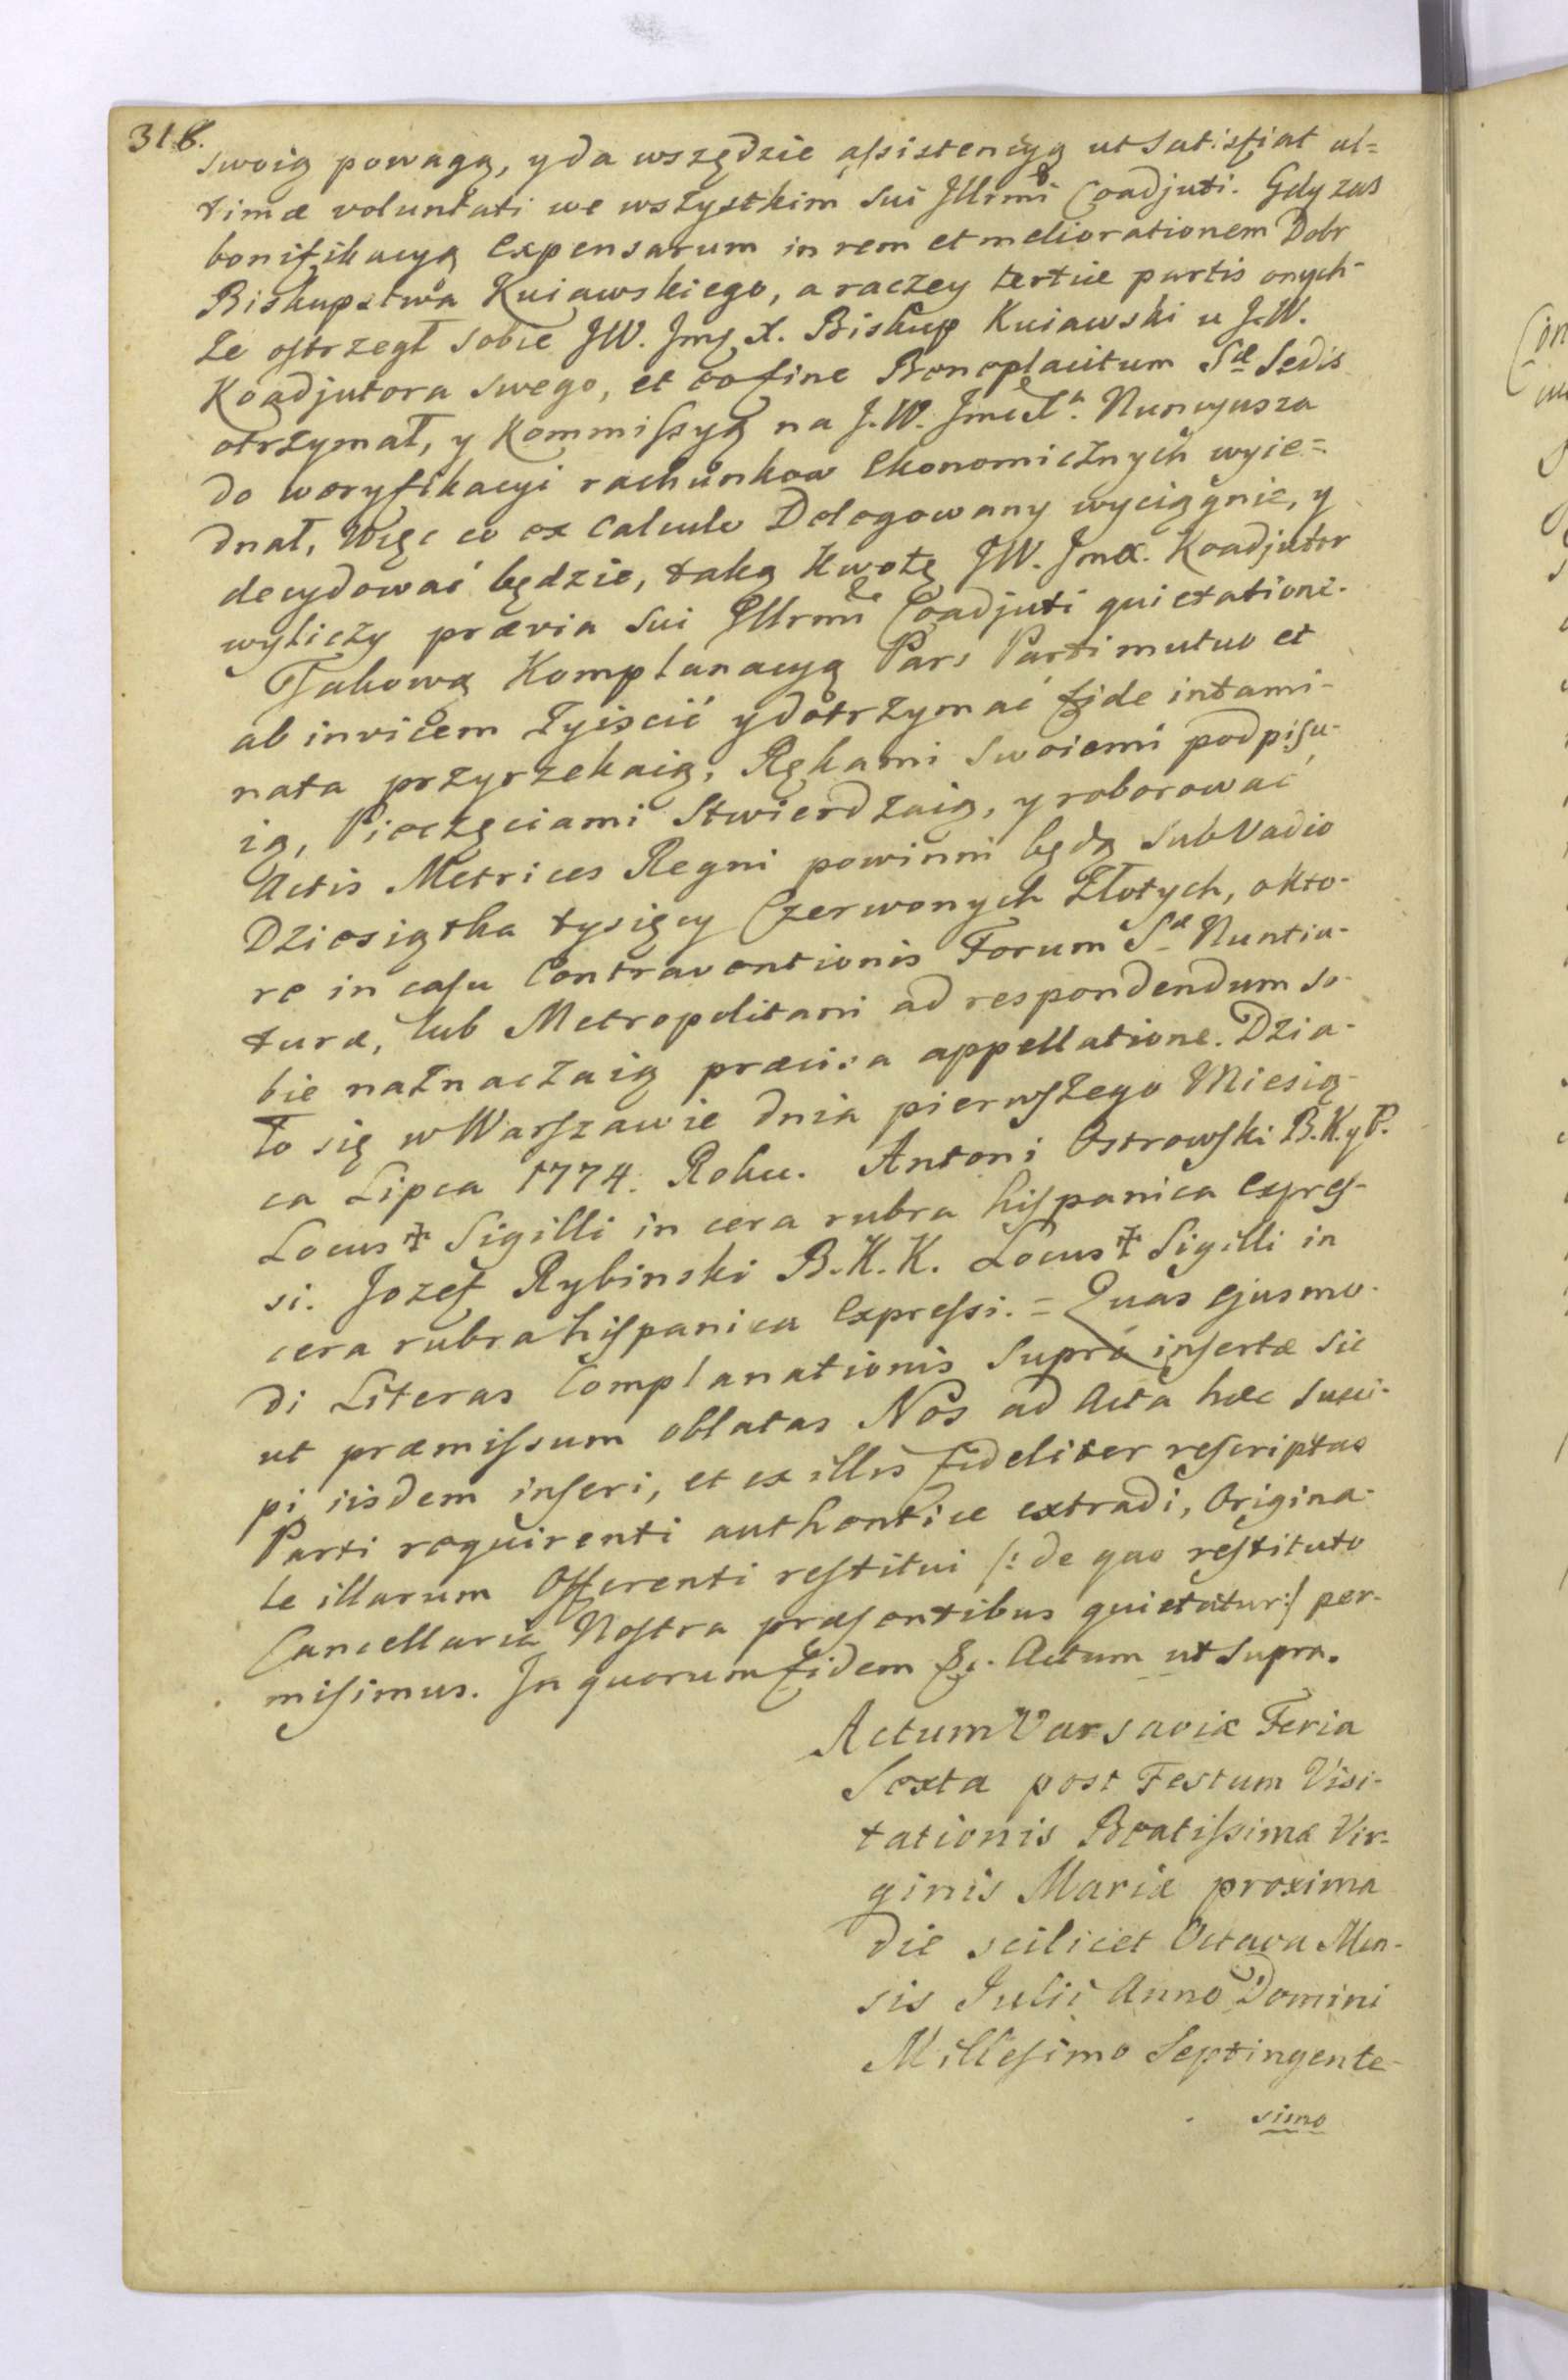 318.
swoią powagą, y da wszędzie assistencyą ut satisfiat ul=
timæ voluntati we wszystkim sui Illrmi Coadjuti. Gdy zas
bonifikacyą Expensarum in rem et meliorationem Dobr
Biskupstwa Kuiawskiego, a raczey tertiæ partis onych-
że ostrzegł sobie JW. Jmć X. Biskup Kuiawski u J.W.
Koadjutora swego, et eo fine Beneplacitum Sæ Sedis
otrzymał, y Kommissyą na J.W. Jmć Xa. Nuncyusza
do weryfikacyi rachunkow Ekonomicznych wyie=
dnał, Więc co ex calculo Delegowany wyciągnie, y
decydować będzie, taką Kwotę JW. Jmć X. Koadjutor
wyliczy prævia sui Illrmi Coadjuti quietatione.
Takową Komplanacyą Pars Parti mutuo et
ab invicem zyiścić y dotrzymać fide intami-
nata przyrzekaią, Rękami swoiemi podpisu-
ią, Pieczęciami stwierdzaią, y roborować
Actis Metrices Regni powinni będą sub Vadio
Dziesiątka tysięcy Czerwonych Złotych, o kto-
re in casu Contraventionis Forum Sæ Nuntia-
turæ, lub Metropolitani ad respondendum so-
bie naznaczaią præcisa appellatione. Dzia-
ło się w Warszawie dnia pierwszego Miesią-
ca Lipca 1774. Roku. Antoni Ostrowski B.K.y P.
Locus ✝ Sigilli in cera rubra hispanica expres-
si. Jozef Rybinski B.K.K. Locus ✝ Sigilli in
cera rubra hispanica Expressi. = Quas ejusmo-
di Literas Complanationis supra insertæ sic
ut præmissum oblatas Nos ad Acta hæc susci-
pi iisdem inseri, et ex illis fideliter rescriptas
Parti requirenti authentice extradi, Origina-
le illarum Offerenti restitui /: de quo restituto
Cancellaria Nostra præsentibus quietatur :/ per-
misimus. In quorum fidem &c. Actum ut supra.
Actum Varsaviæ Feria
Sexta post Festum Visi-
tationis Beatissimæ Vir-
ginis Mariæ proxima
die scilicet Octava Men-
sis Julii Anno Domini
Millesimo Septingente-
simo